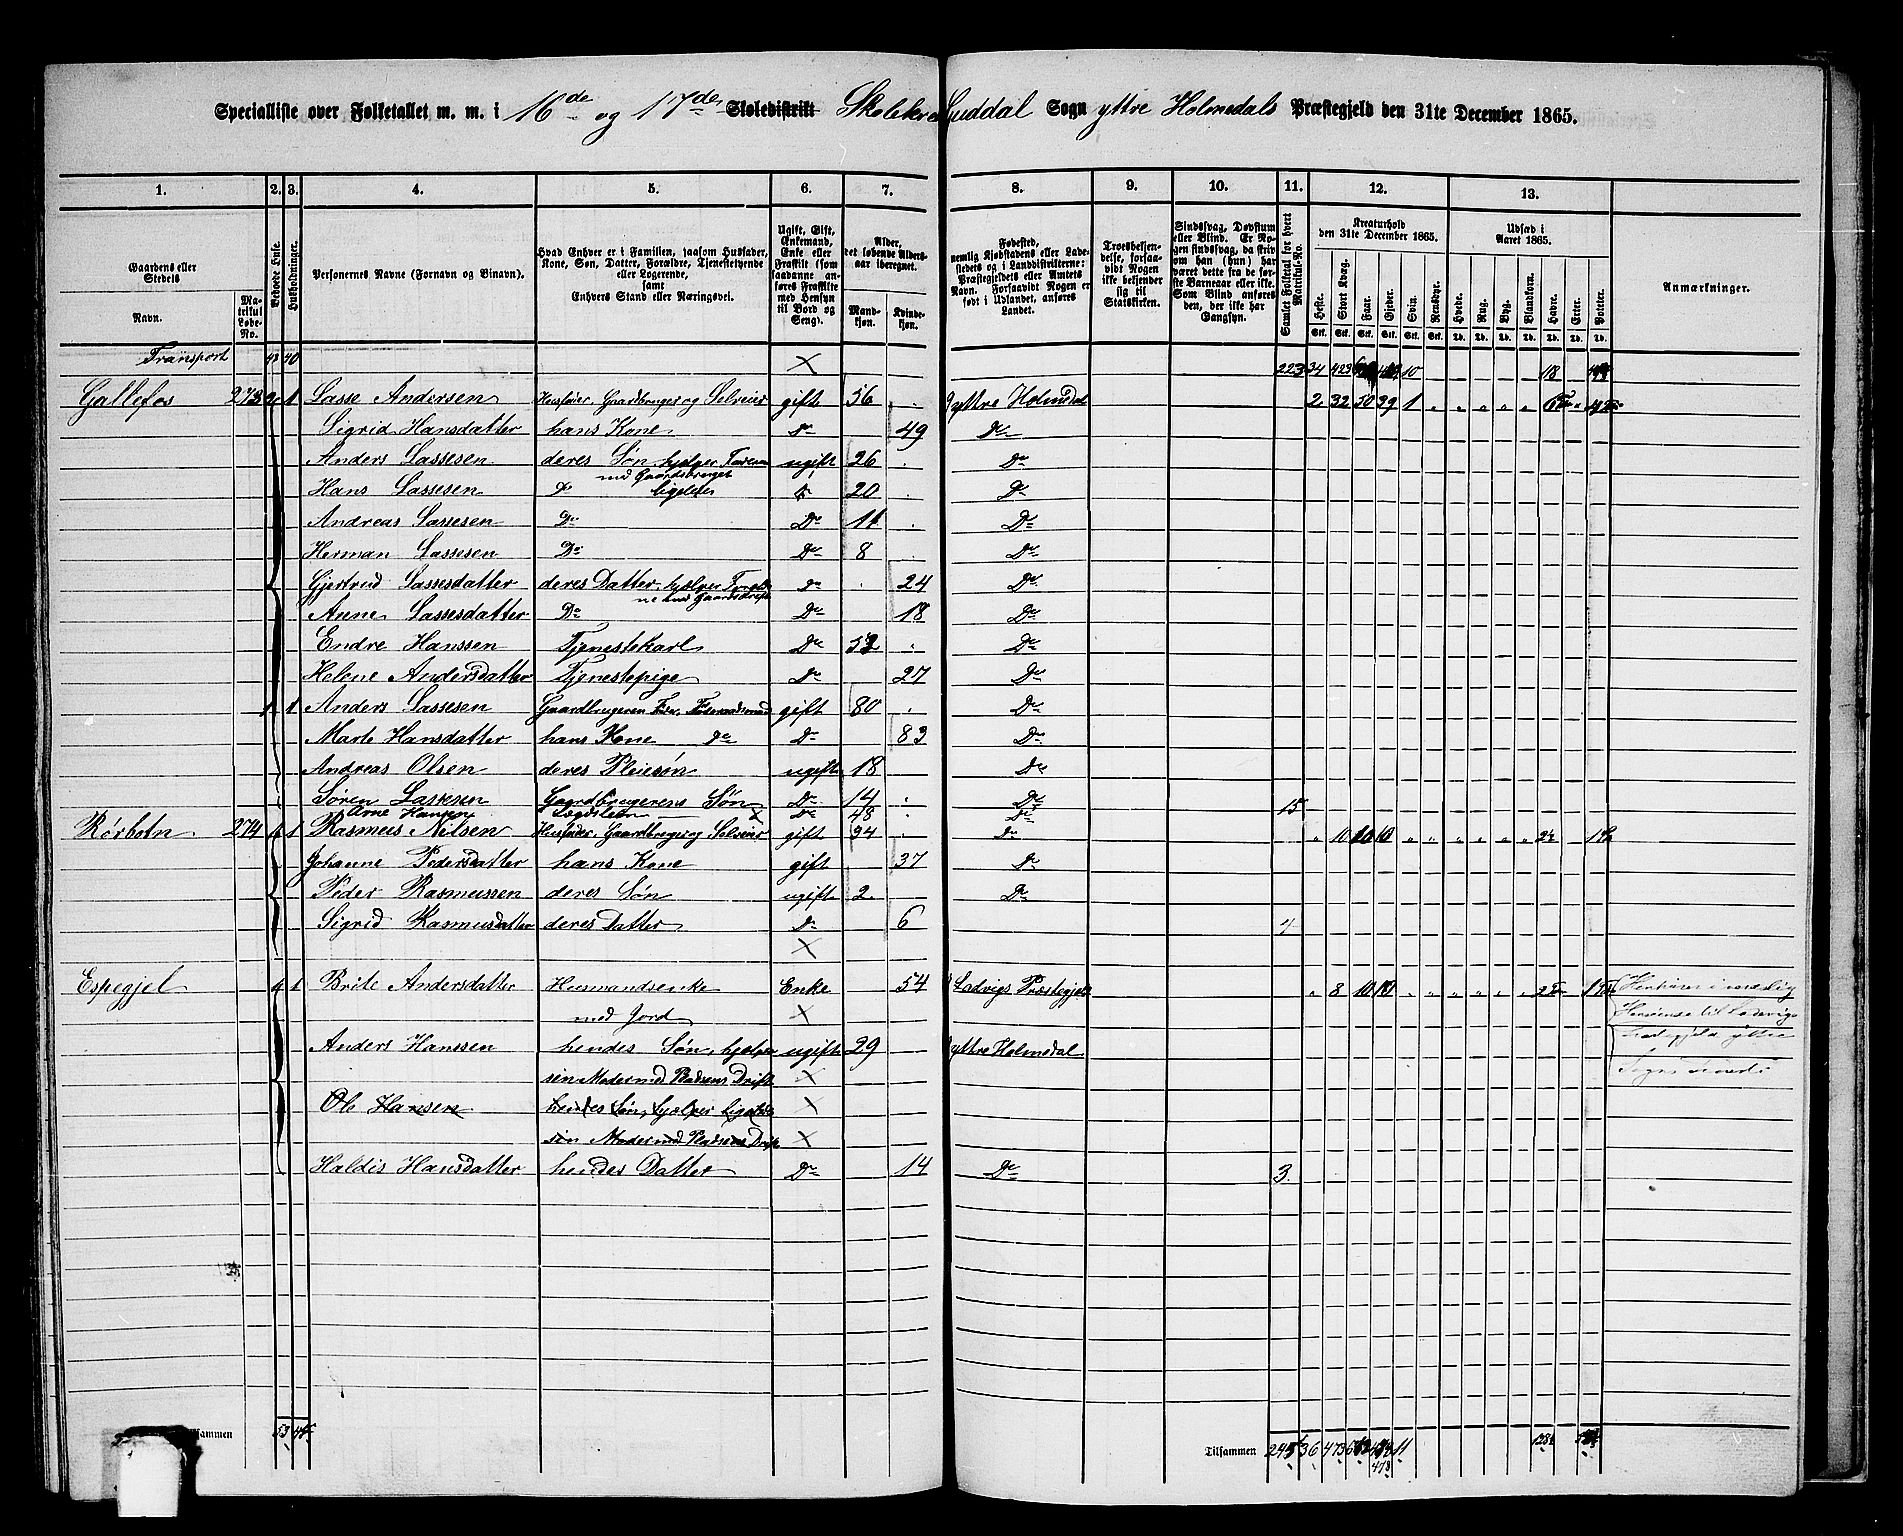 Specialliste over Folketallet m. m. i 16de og 17de Skoledistrikt Guddal Sogn yttre Holmedals Præstegjeld den 31te December 1865.
1. 2. 3. 4. 5. 6. 7. 8. 9. 10. 11. 12. 13.
Gaardens eller Stedets
Navn. Matrikul Løbe-No.
Beboede Huse.
Husholdninger.
Personernes Navne (Fornavn og Binavn).
Hvad Enhver er i Familien, saasom Husfader, Kone, Søn, Datter, Forældre, Tjenestetyende eller Logerende, samt Enhvers Stand eller Næringsvei.
Ugift, Gift, Enkemand, Enke eller Fraskilt (som saadanne anføres Fraskilte med Hensyn til Bord og Seng).
Alder, det løbende Aldersaar iberegnet.
Mandkjøn. Kvindekjøn.
Fødested, nemlig Kjøbstadens eller Ladestedets og i Landdistrikterne: Præstegjeldets eller Amtets Navn. Forsaavidt Nogen er født i Udlandet, anføres Landet.
Troesbekjendelse, forsaavidt Nogen ikke bekjender sig til Statskirken.
Sindssvag, Døvstum eller Blind. Er Nogen sindssvag, da skrives om han (hun) har været dette fra de første Barneaar eller ikke. Som Blind anføres den, der ikke har Gangsyn.
Samlet Folketal for hvert Matrikul-No.
Kreaturhold den 31te December 1865.
Heste. Stort Kvæg. Faar. Gjeder. Svin. Rensdyr.
Udsæd i Aaret 1865.
Hvede. Rug. Byg. Blandkorn. Havre. Erter. Poteter.
Anmærkninger.
Transport 43 40 × 223 34 423 10 18
Gallefos 273 2 1 Lasse Andersen Husfader, Gaardbruger og Selveier gift 56 yttre Holmdal 2 32 50 39 1
Sigrid Hansdatter hans Kone gift 49 Do
Anders Lassesen deres Søn hjælper Faderen med Gaardsbruget ugift 26 Do
Hans Lassesen Do ligeledes Do 20 Do
Andreas Lassesen Do Do 11 Do
Herman Lassesen Do Do 8 Do
Gjertrud Lassesdatter deres Datter, hjælper Do 24 Do
Anne Lassesdatter Do Do 18 Do
Endre Hanssen Tjenestekarl Do 52 Do
Helene Andersdatter Tjenestepige Do 27 Do
1 1 Anders Lassesen Gaardbrugeren Føderaadsmand gift 80 Do
Marte Hansdatter hans Kone Do Do 83 Do
Andreas Olsen deres Pleiesøn ugift 18 Do
Søren Lassesen Gaardbrugerens Søn Do 14 Do 15
Arne Hansen Lægdslem × Do 48 Do
Rørbotn 274 1 1 Rasmus Nilsen Husfader, Gaardbruger og Selveier gift 34 Do 10 10 10
Johanne Pedersdatter hans Kone gift 37 Do
Peder Rasmussen deres Søn ugift 2 Do
Sigrid Rasmusdatter deres Datter Do 6 4
×
Espegjel 1 1 Brite Andersdatter Husmandsenke Enke 54 Ladvigs Præstegjeld 8 10
med Jord ×
Anders Hanssen hendes Søn, hjælper ugift 29 yttre Holmdal
sin Moder med Pladsens Drift ×
Ole Hansen hendes Søn, hjælper ligeledes ×
sin Moder med Pladsens Drift ×
Haldis Hansdatter hendes Datter Do 14 Do 3
Tilsammen
Tilsammen 245 36 11
478